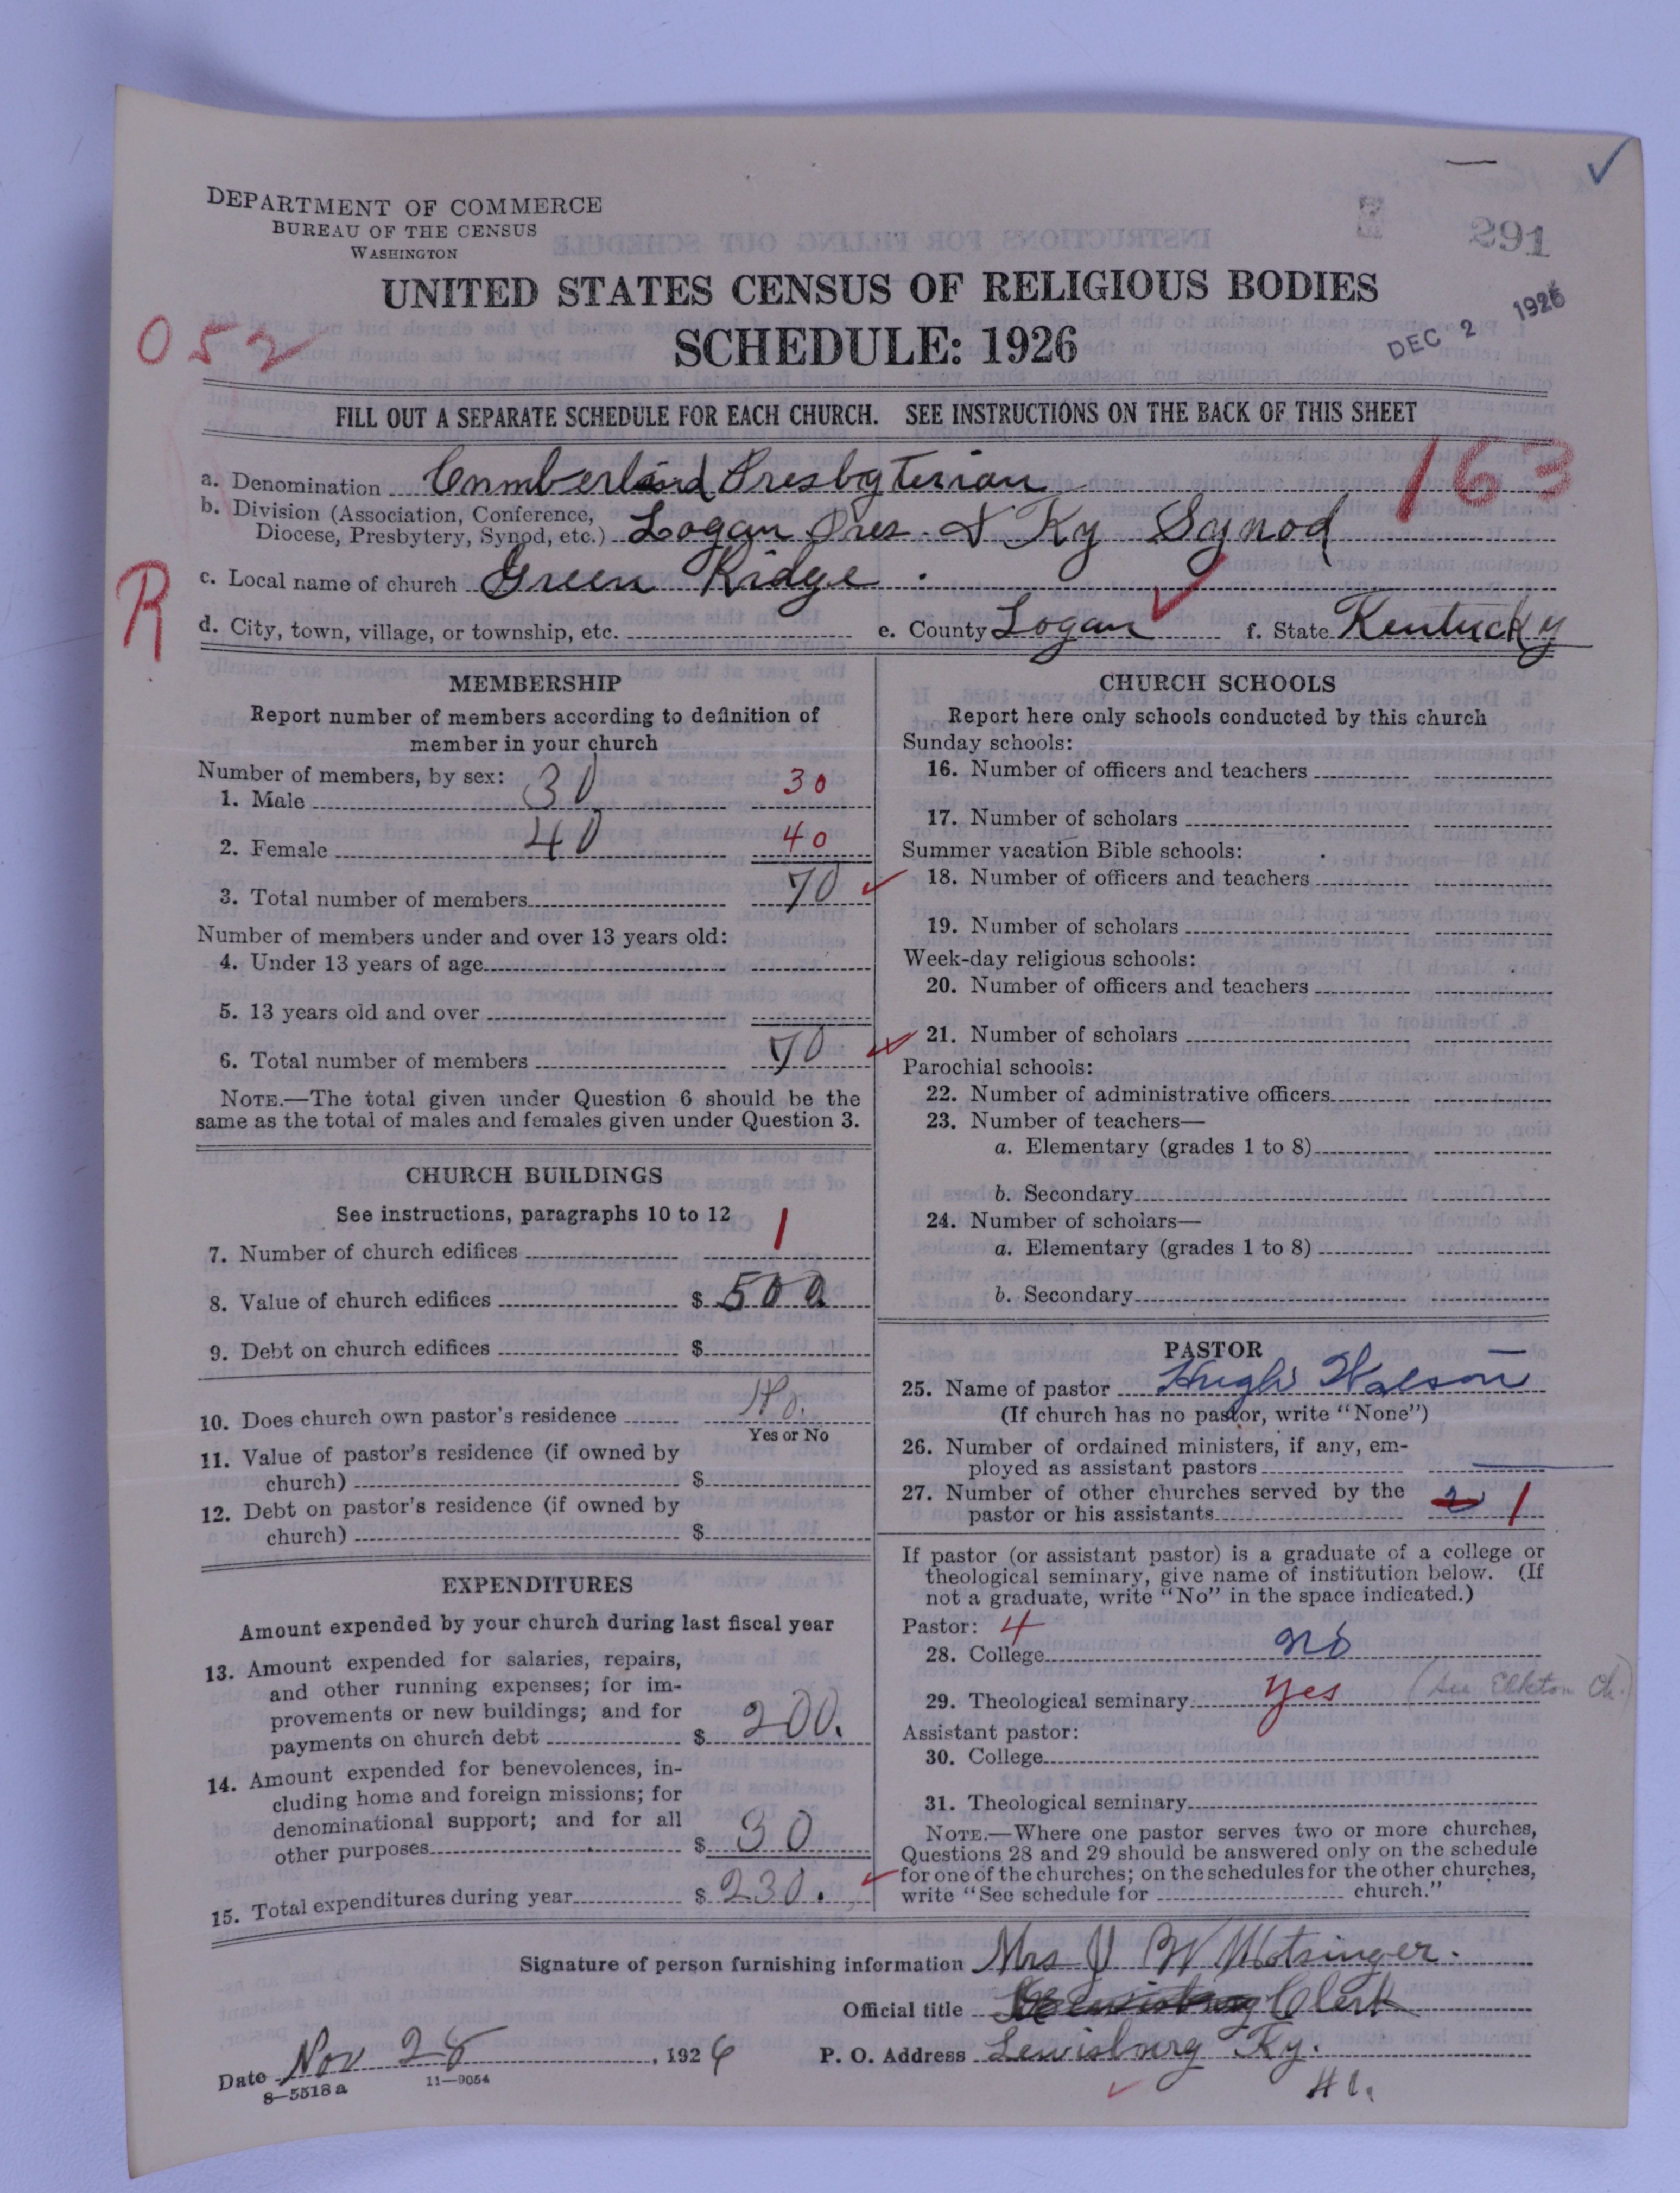 DEPARTMENT OF COMMERCE
BUREAU OF THE CENSUS
WASHINGTON
291
UNITED STATES CENSUS OF RELIGIOUS BODIES
SCHEDULE: 1926
DEC 2 1926
052
FILL OUT A SEPARATE SCHEDULE FOR EACH CHURCH. SEE INSTRUCTIONS ON THE BACK OF THIS SHEET
163
a. Denomination Cumberland Presbyterian
b. Division (Association, Conference, Diocese, Presbytery, Synod, etc.) Logan Pres. & Ky Synod
c. Local name of church Green Ridge.
R
d. City, town, village, or township, etc. e. County Logan f. State Kentucky
MEMBERSHIP
Report number of members according to definition of
member in your church
Number of members, by sex:
1. Male 30 30
2. Female 40 40
3. Total number of members 70
Number of members under and over 13 years old:
4. Under 13 years of age
5. 13 years old and over
6. Total number of members 70
NOTE.—The total given under Question 6 should be the
same as the total of males and females given under Question 3.
CHURCH BUILDINGS
See instructions, paragraphs 10 to 12
7. Number of church edifices 1
8. Value of church edifices $ 500.
9. Debt on church edifices $
10. Does church own pastor's residence No.
Yes or No
11. Value of pastor's residence (if owned by
church) $
12. Debt on pastor's residence (if owned by
church) $
EXPENDITURES
Amount expended by your church during last fiscal year
13. Amount expended for salaries, repairs,
and other running expenses; for im-
provements or new buildings; and for
payments on church debt $ 200.
14. Amount expended for benevolences, in-
cluding home and foreign missions; for
denominational support; and for all
other purposes $ 30
15. Total expenditures during year $ 230.
CHURCH SCHOOLS
Report here only schools conducted by this church
Sunday schools:
16. Number of officers and teachers
17. Number of scholars
Summer vacation Bible schools:
18. Number of officers and teachers
19. Number of scholars
Week-day religious schools:
20. Number of officers and teachers
21. Number of scholars
Parochial schools:
22. Number of administrative officers
23. Number of teachers—
a. Elementary (grades 1 to 8)
b. Secondary
24. Number of scholars—
a. Elementary (grades 1 to 8)
b. Secondary
PASTOR
25. Name of pastor Hugh Watson
(If church has no pastor, write "None")
26. Number of ordained ministers, if any, em-
ployed as assistant pastors
27. Number of other churches served by the
pastor or his assistants 2 1
If pastor (or assistant pastor) is a graduate of a college or
theological seminary, give name of institution below. (If
not a graduate, write "No" in the space indicated.)
Pastor: 4
28. College no
29. Theological seminary yes (See Elkton Ch.)
Assistant pastor:
30. College
31. Theological seminary
NOTE.—Where one pastor serves two or more churches,
Questions 28 and 29 should be answered only on the schedule
for one of the churches; on the schedules for the other churches,
write "See schedule for church."
Signature of person furnishing information Mrs J W Motsinger.
Official title Clerk
Date Nov 28, 1926 P. O. Address Lewisburg Ky.
8—5518a 11—9054